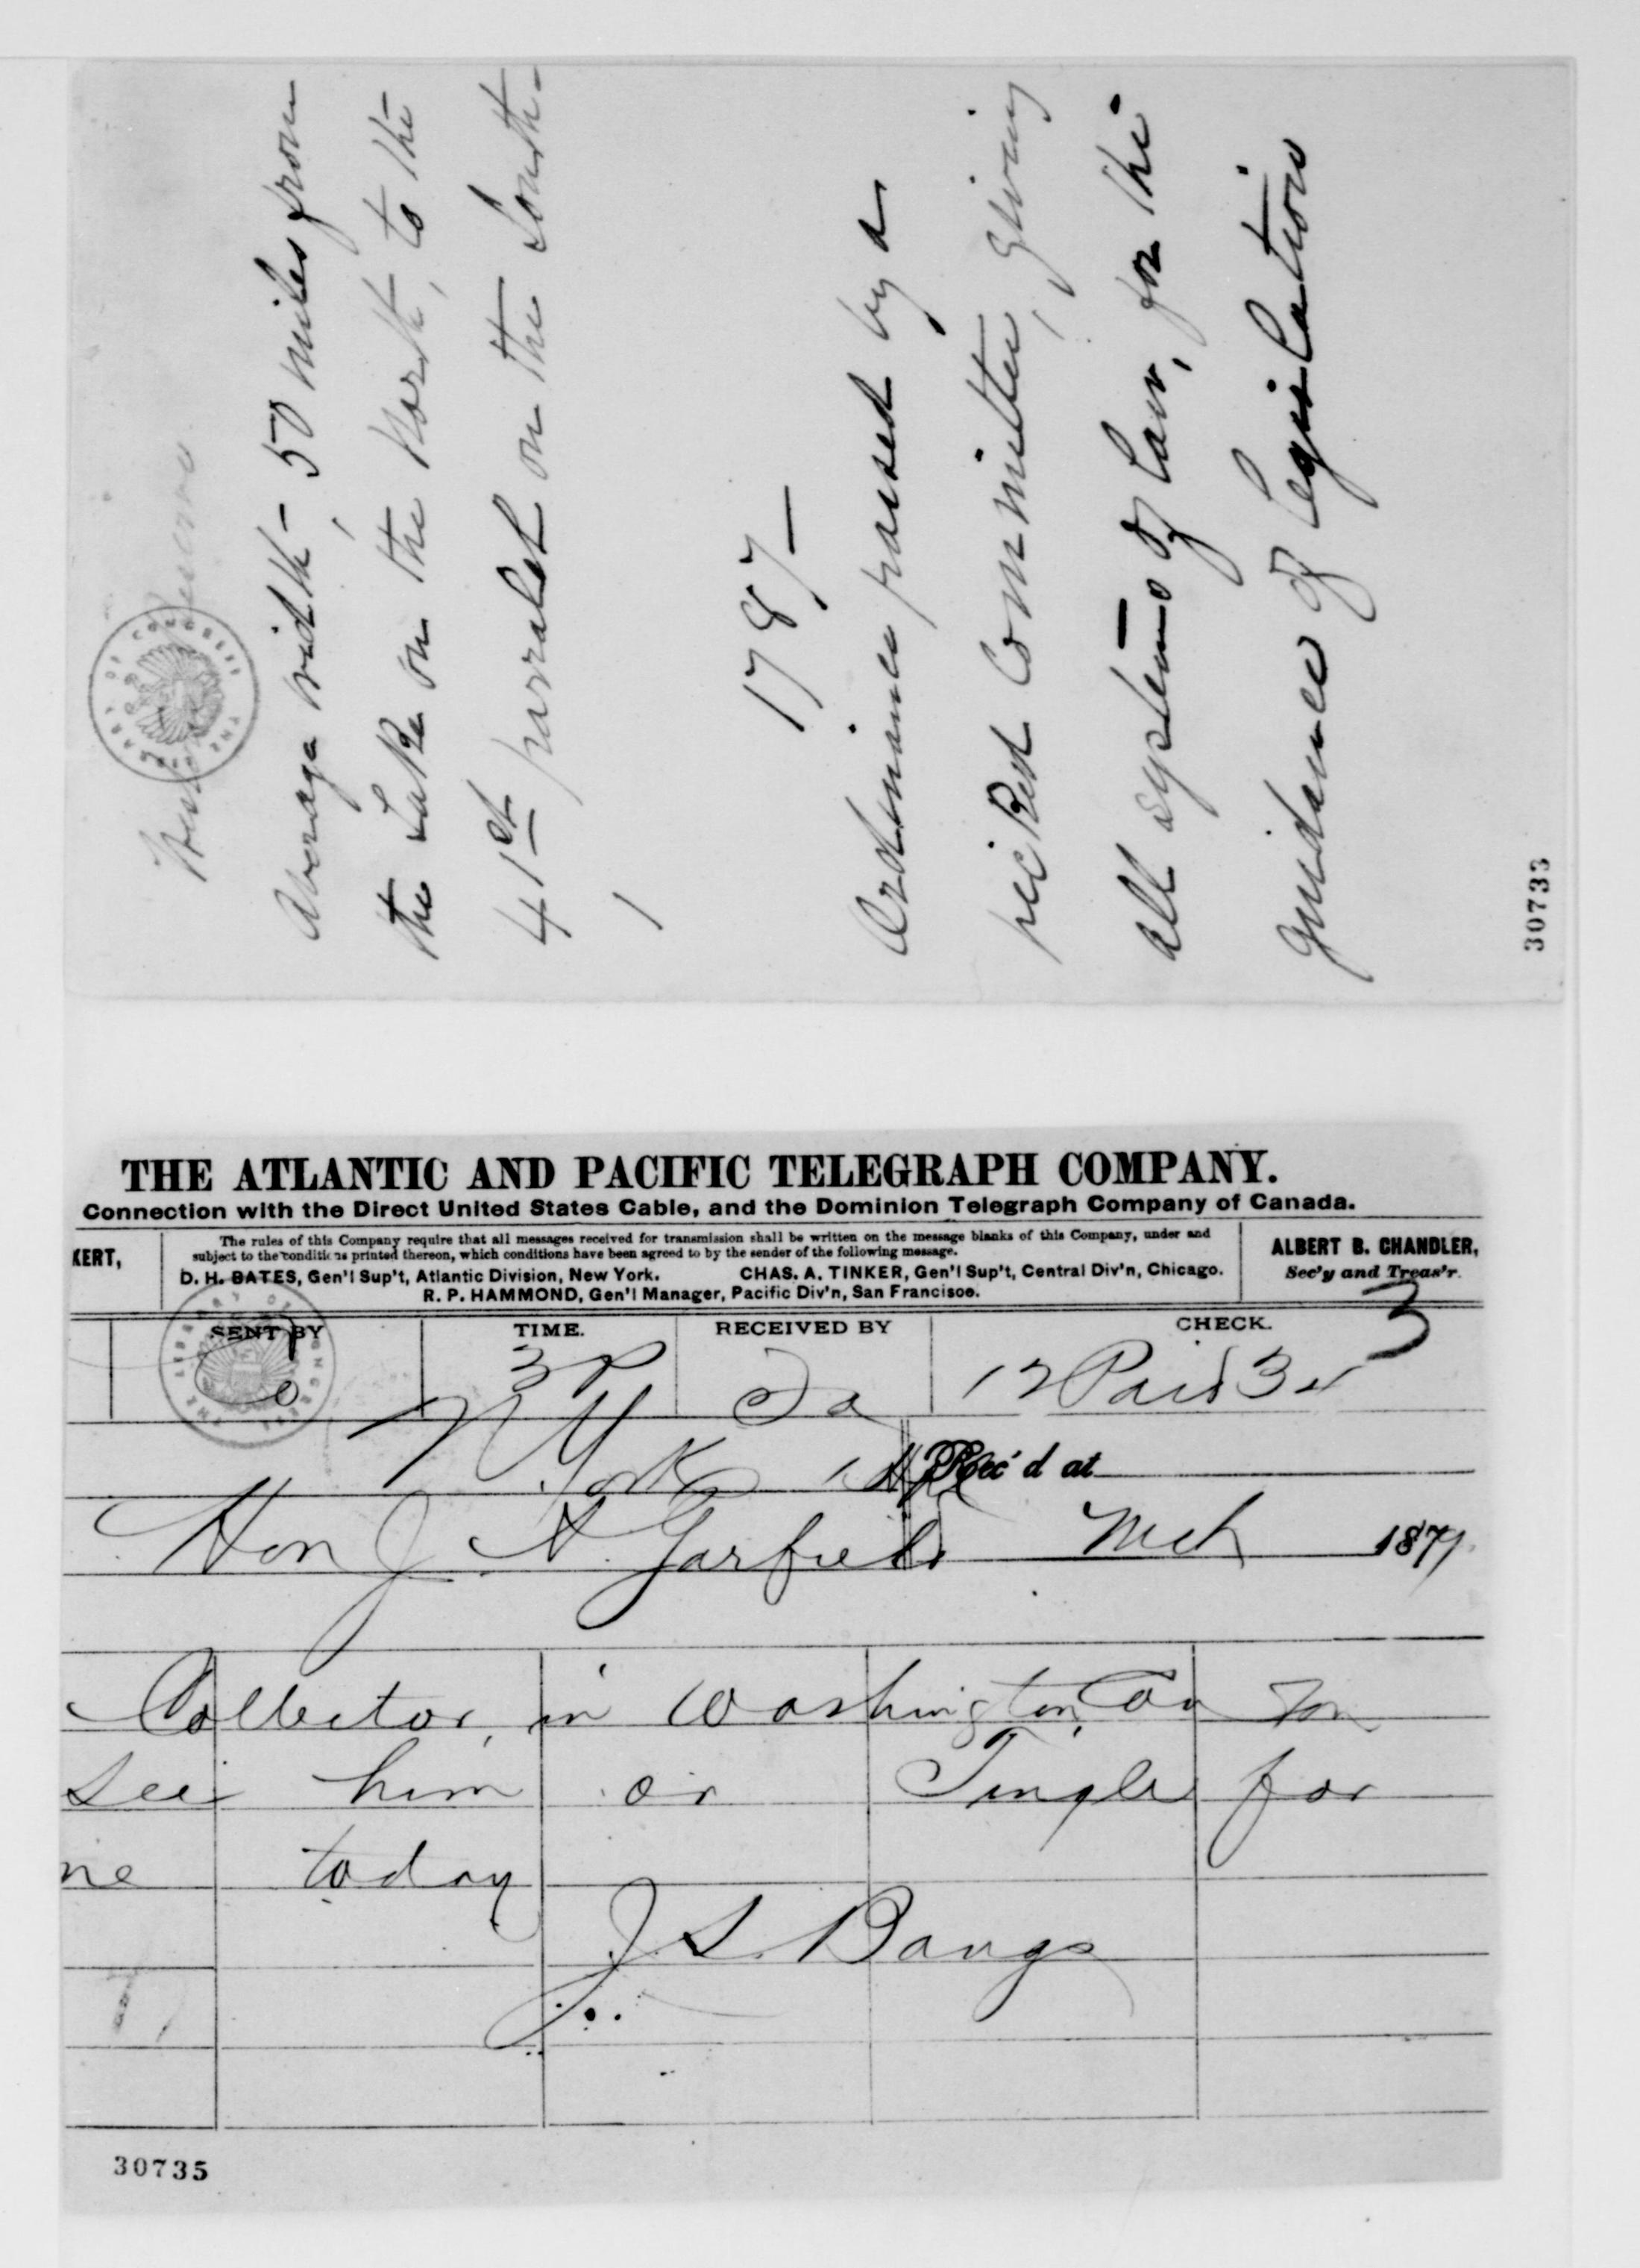 Western Reserve
Average width - 50 miles from
the Lake on the North, to the
41st parralel on the South -
1787 -
Ordinance passed by a
picked Committee, giving
all systems of law, for the
guidance of legislation
30733
THE ATLANTIC AND PACIFIC TELEGRAPH COMPANY.
Connection with the Direct United States Cable, and the Dominion Telegraph Company of Canada.
KERT,
The rules of this Company require that all messages received for transmission shall be written on the message blanks of this Company, under and
subject to the conditions printed thereon, which conditions have been agreed to by the sender of the following message.
D. H. BATES, Gen'l Sup't, Atlantic Division, New York. CHAS. A. TINKER, Gen'l Sup't, Central Div'n, Chicago.
R. P. HAMMOND, Gen'l Manager, Pacific Div'n, San Francisco.
ALBERT B. CHANDLER,
Sec'y and Treas'r.
3
SENT BY TIME. RECEIVED BY CHECK.
12 Paid 3
N Y
York Rec'd at
Hon J A Garfield Mch 1877
Collector in Washington, Can You
see him or Tingle for
me today
J S Bangs
30735